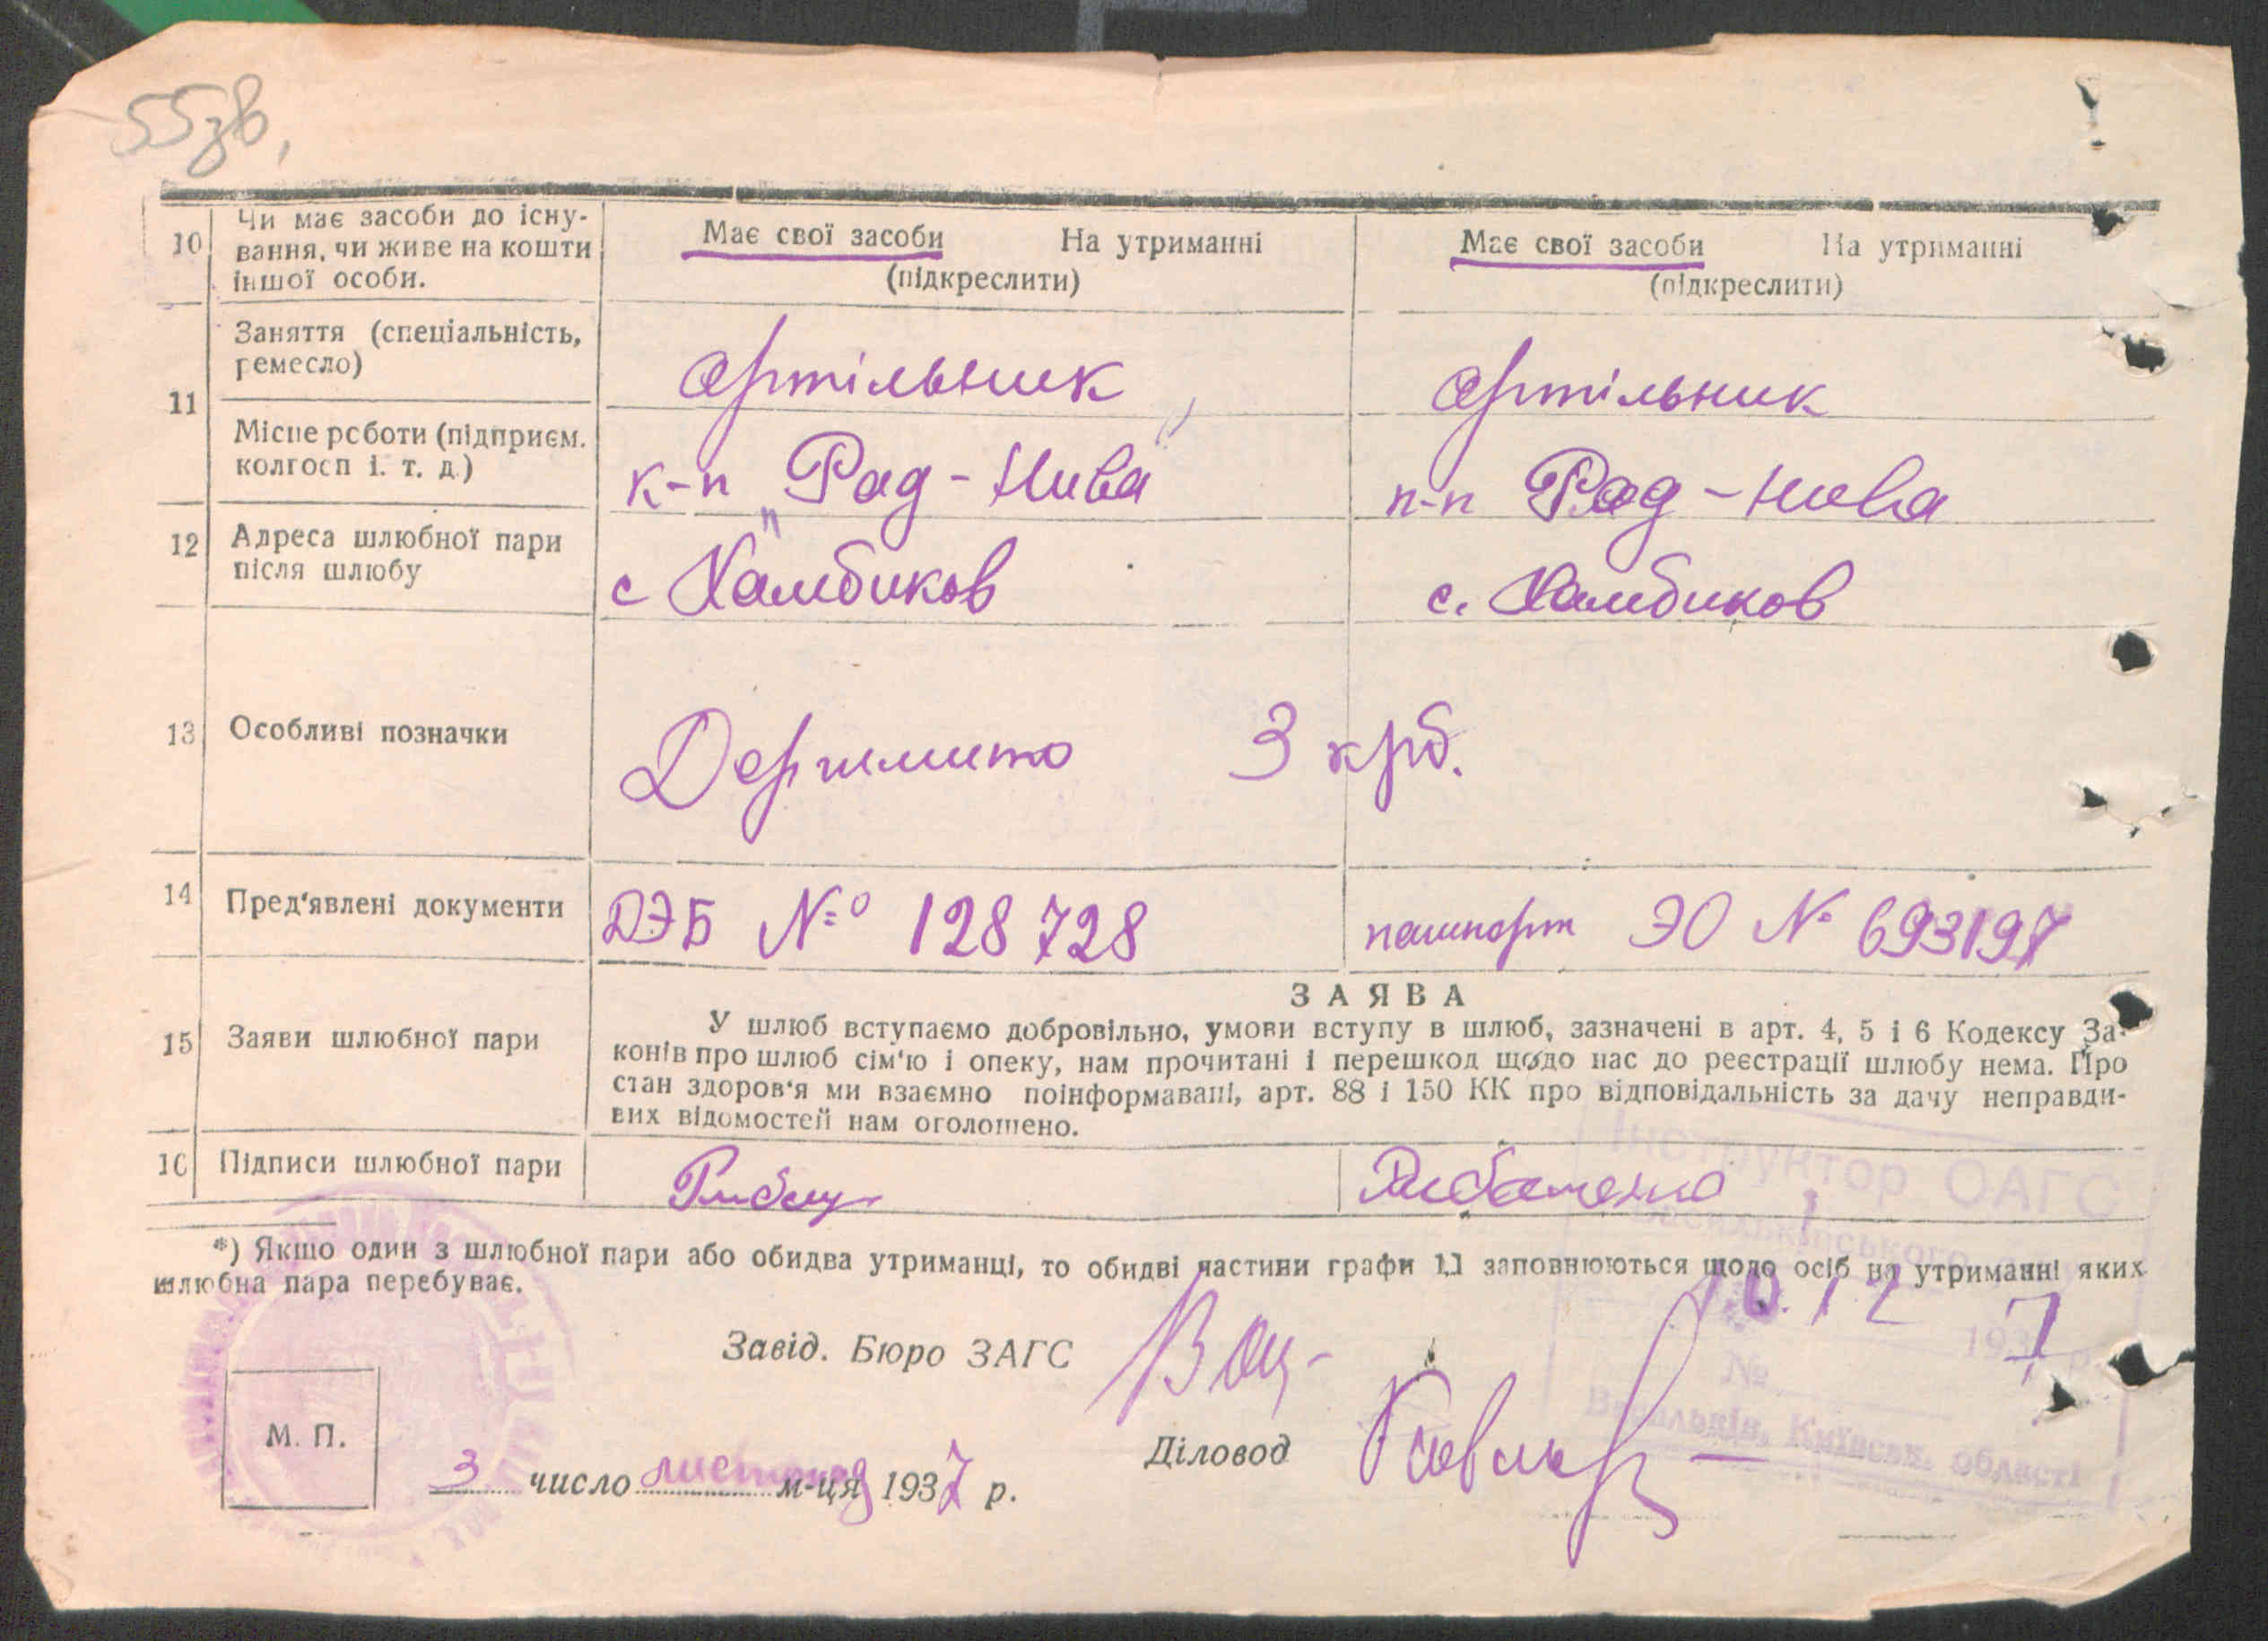 55зв,
10 Чи має засоби до існу-
вання, чи живе на кошти
іншої особи.
Має свої засоби На утриманні
(підкреслити)
Має свої засоби На утриманні
(підкреслити)
11 Заняття (спеціальність,
ремесло)
артільник
артільник
Місце роботи (підприєм.
колгосп і. т. д.)
к-п „Рад-Нива
п-п Рад-Нива
12 Адреса шлюбної пари
після шлюбу
с Хамбиков
с. Хамбиков
13 Особливі позначки
Держмито 3 крб.
14 Пред'явлені документи
ДЭБ № 128728
пашпорт ЭО № 693197
15 Заяви шлюбної пари
ЗАЯВА
У шлюб вступаємо добровільно, умови вступу в шлюб, зазначені в арт. 4, 5 і 6 Кодексу За-
конів про шлюб сім'ю і опеку, нам прочитані і перешкод щодо нас до реєстрації шлюбу нема. Про
стан здоров'я ми взаємно поінформавані, арт. 88 і 150 КК про відповідальність за дачу неправди-
вих відомостей нам оголошено.
16 Підписи шлюбної пари
Інструктор ОАГС
*) Якщо один з шлюбної пари або обидва утриманці, то обидві частини графи 11 заповнюються щодо осіб на утриманні яких
шлюбна пара перебуває.
10.12 1937 р.
№
Завід. Бюро ЗАГС
Васильків, Київськ. області
М. П.
Діловод
3 число листопад м-ця 1937 р.